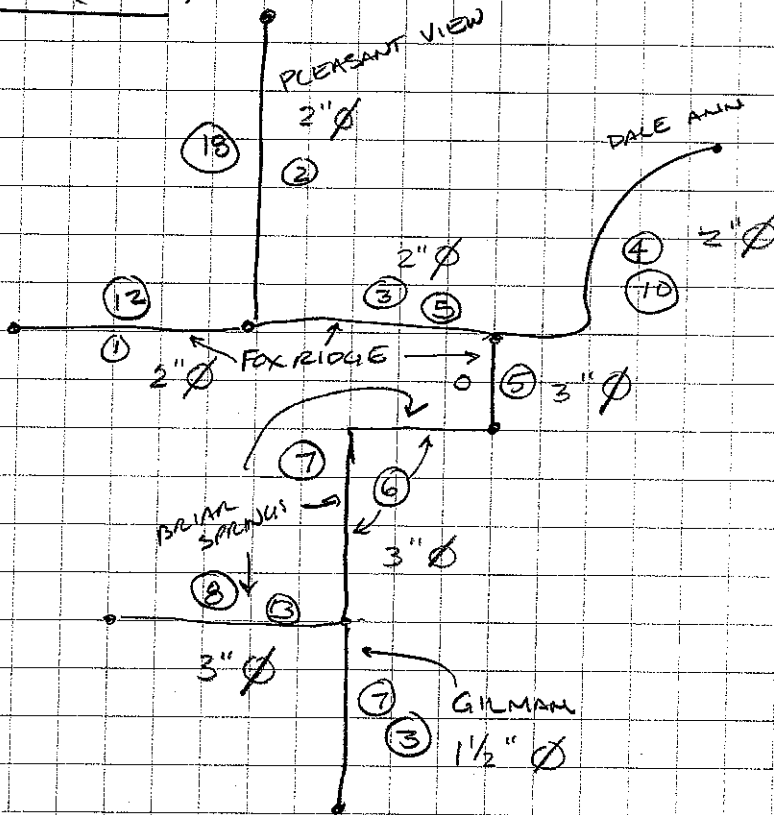 PLEASANT VIEW
2"Ø
18
2
DALE ANN
2"Ø
4
10
2"Ø
3
5
12
1
2"Ø
FOX RIDGE
0
5
3"Ø
7
6
BRIAR
SPRINGS
3"Ø
8
13
3"Ø
7
3
GILMAN
1½"Ø